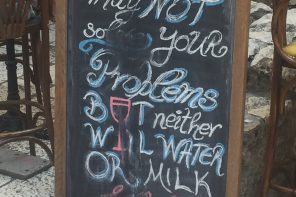 may NOT
so YOUR
Problems
BUT neither
WILL WATER
OR MILK